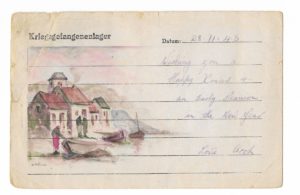 Kriegsgefangenenlager
Datum: 23·11·43
Wishing you a
Happy Xmas &
an early Reunion
in the New Year